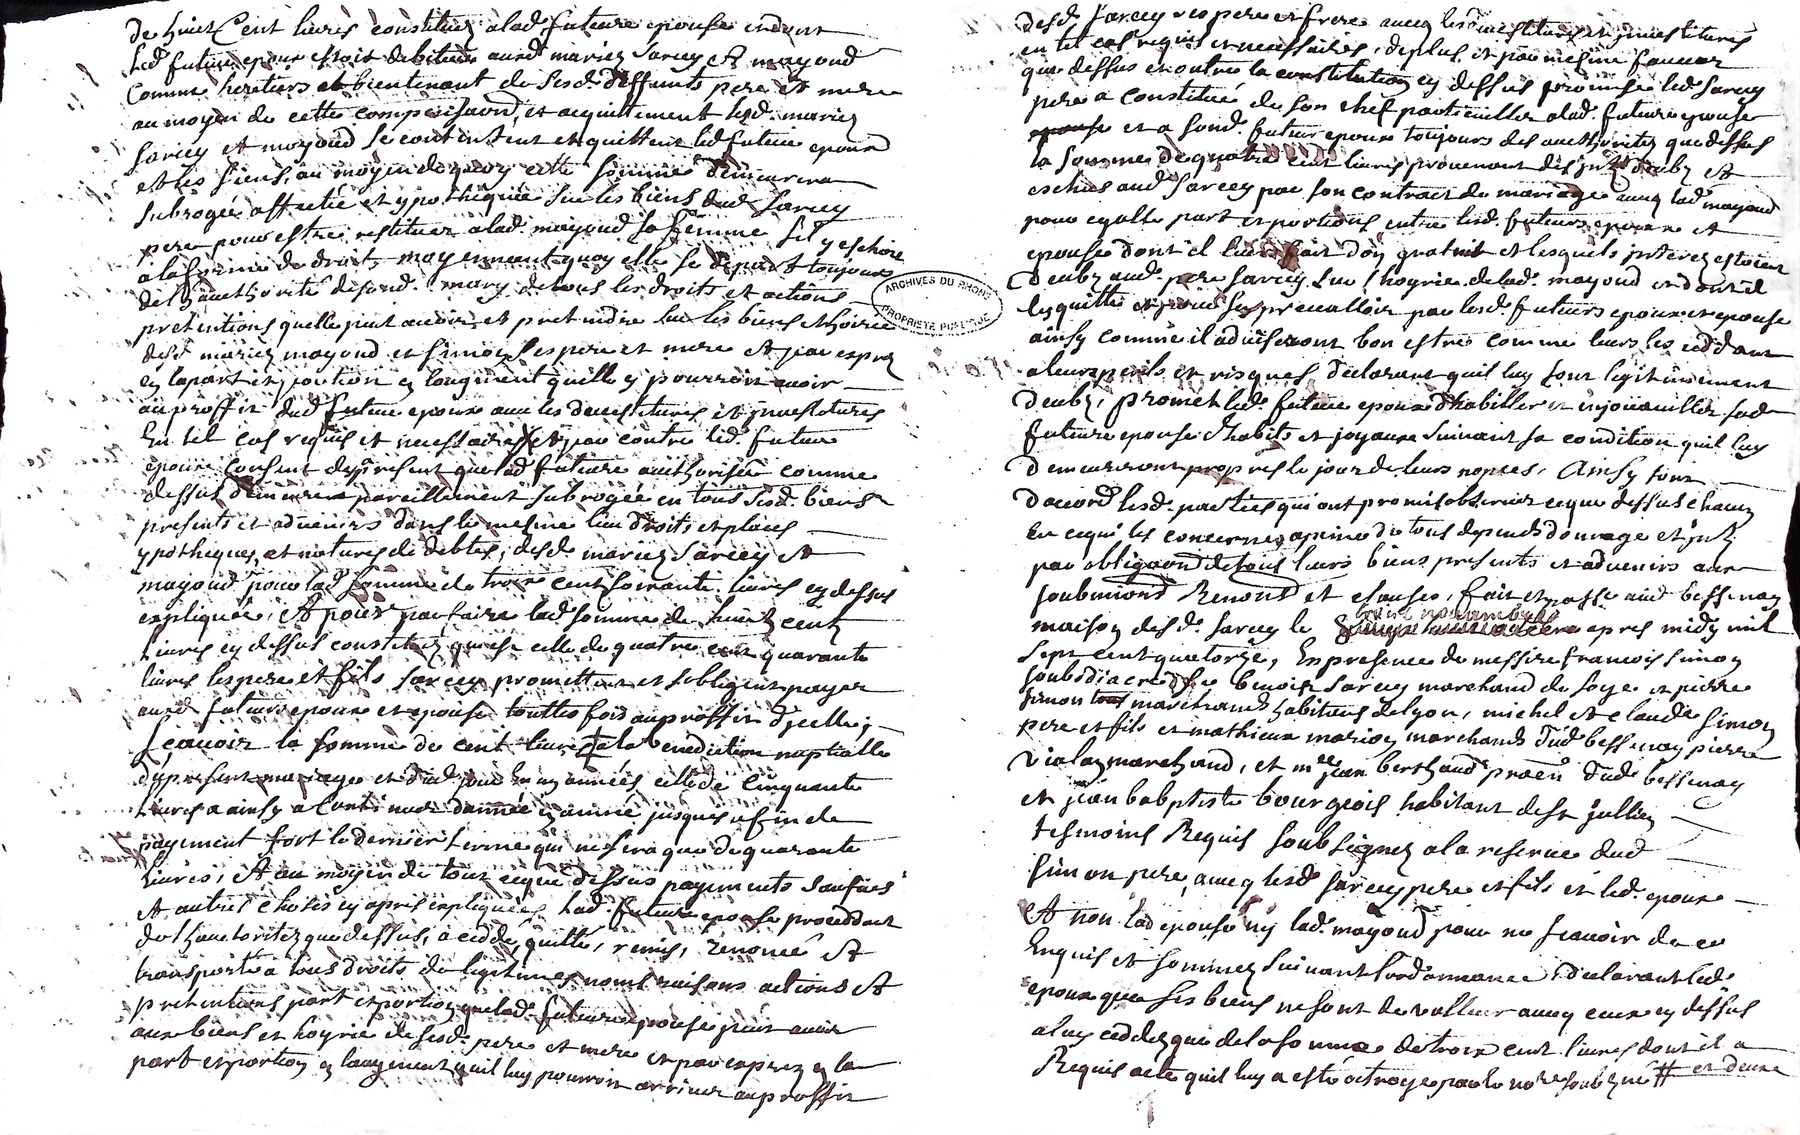 de huict Cent livres constituez a lad. future epouse et dont
led. futur epoux estoit debiteur aux d. mariez Sarcey et mayoud
Comme heretiers et bientenant de ses d. deffunts pere et mere
au moyen de cette compensaon et acquittement lesd. mariez
Sarcey et mayoud se contentent et quittent led. futur epoux
et les siens, au moyen de quoy cette somme demeurera
subrogée affectée et ypothequée sur les biens dud. Sarcey
pere pour estre restituez a lad. mayoud sa femme sil y eschoit
a la forme de droit, moyennant quoy elle se depart toujours
de lauthorité de sond. mary de tous les droits et actions
pretentions quelle peut avoir et pretendre sur les biens et hoirie
desd. mariez mayoud et Simon ses pere et mere et par exprez
en la part et portion en laugment quelle y pourroit avoir
au proffit dud. futur epoux avec les devestitures et investitures
En tel cas requis et necessaires et par contre led. futur
epoux consent des present que lad. future authorisée comme
dessus demeure pareillement subrogée en tous sesd. biens
presents et advenirs dans le mesme lieu droits et places
ypotheques, et natures de debtes, desd. mariez Sarcey et
mayoud pour lad. somme de trois cent soixante livres cy dessus
expliquée, Et pour parfaire lad. somme de huict cent
livres cy dessus constituez qu'est celle de quatre cent quarante
livres lesd. pere et fils Sarcey promettent et sobligent payer
auxd. futurs epoux et epouse touttes fois au proffit d'jcelle;
scavoir la somme de cent livres a la benediction nuptialle
du present mariage et dud. jour En un années celle de Cinquante
livres a ainsy a Continuer dannée en année jusques a fin de
payement fort le dernier terme qui ne sera que de quarante
livres, Et au moyen de tout ce que dessus payements
et autres choses cy apres expliquées lad. future epouse proceddant
de lhauthorité que dessus, a ceddé, quitté, remis, renoncé et
transporté a tous droits de legitimes noms raisons actions et
pretentions part et portion que lad. future epouse peut avoir
aux biens et hoyrie de sesd. pere et mere et par exprez en la
part et portion en laugment quil luy pourroit arriver au proffit
desd. Sarcey ses pere et frere avec les devestitures et jnvestitures
en tel cas requis et necessaires, de plus, et par mesme faveur
que dessus et outre la constitution cy dessus promise led. Sarcey
pere a constitué de son chef particulier a lad. future epouse
epouse et a sond. futur epoux toujours des authoritez que dessus
la somme de quatre cent livres provenant des jnts deubz et
eschus aud. Sarcey par son contract de mariage avec lad. mayoud
pour egalle part et portions entre lesd. futurs epoux et
epouse dont il leurs fait don gratuit et lesquels jnterez estoient
deubz aud. pere Sarcey sur l'hoyrie de lad. mayoud et dont il
les quitte et pour sen prevalloir par lesd. futurs epoux et epouse
ainsy comme il adviseront bon estre comme leurs les ceddant
a leurs perils et risques declarant quil luy sont legitimement
deubz, promet led. futur epoux d'habiller et enjouailler sad.
future epouse d'habits et joyaux suivant sa condition quil luy
demeureront propres le jour de leurs nopces, Ainsy sont
d'accord lesd. parties qui ont promis observer ce que dessus chacun
En ce qui les concernes a peine de tous depends domage et jnts
par obligaon de tous leurs biens presents et advenirs aux
soubmions Renons et clauses, fait et passé aud. bessenay
maison desd. Sarcey le vint novembre apres midy mil
sept cent quatorze, En presence de messire francois Simon
soubsdiacre Sr benoist Sarcey marchand de soye et pierre
Simon marchand habitans de lyon, michel et claude Simon
pere et fils et mathieux marion marchands dud. bessenay pierre
vialay marchand, et me jean berthaud proen dud. bessenay
et jean baptiste bourgeois habitant de st jullien
tesmoins Requis soubsignez a la reserve dud.
Simon pere, avec lesd. Sarcey pere et fils et led. epoux
Et non lad. epouse ny lad. mayoud pour ne scavoir de ce
Enquis et sommez suivant lordonnance, declarant led.
epoux que ses biens ne sont de valleur avec ceux cy dessus
a luy ceddez que de la somme de trois cent livres dont il a
Requis acte quil luy a esté octroyé par le nore soubzné # et deux
ARCHIVES DU RHONE
PROPRIETE PUBLIQUE